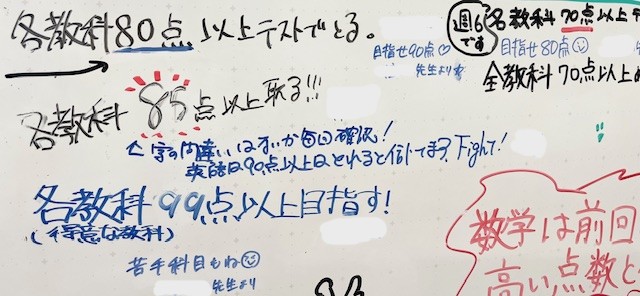 各教科80点以上テストでとる。
目指せ90点♡
先生より
週6です
各教科70点以上テ
目指せ80点☺
全教科70点以上
各教科85点以上取る!!!
字の間違いはないか毎回確認!
英語は90点以上はとれると信じてます。Fight!
各教科99点以上目指す!
(得意な教科)
苦手科目もね☺
先生より
数学は前回
高い点数と